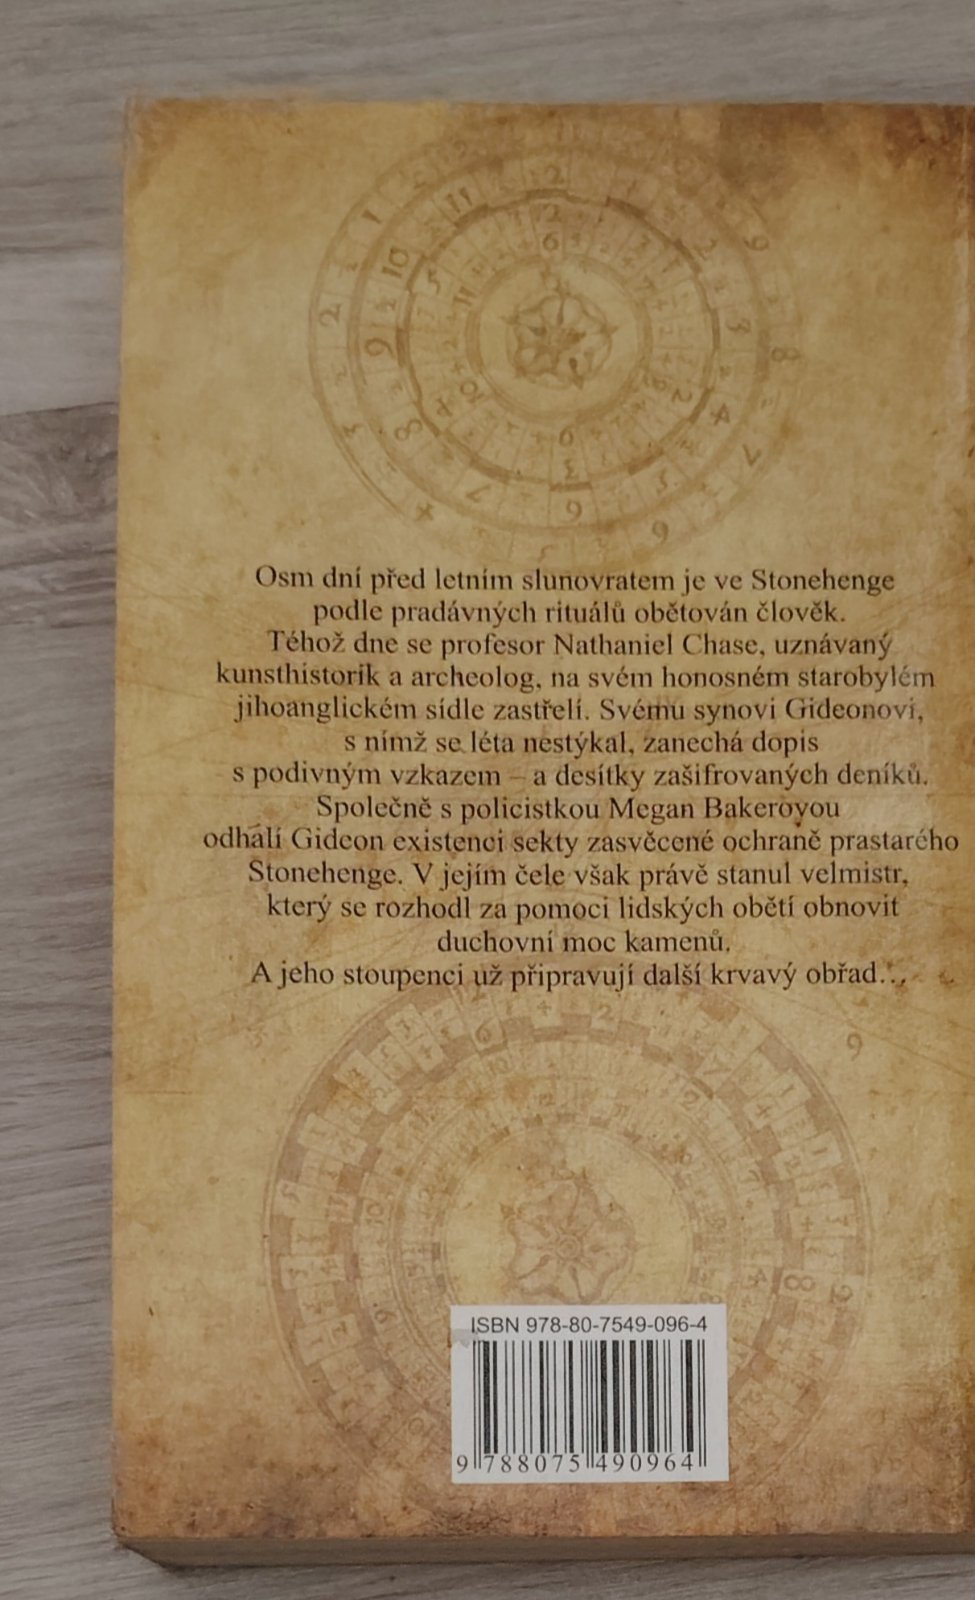 Osm dní před letním slunovratem je ve Stonehenge
podle pradávných rituálů obětován člověk.
Téhož dne se profesor Nathaniel Chase, uznávaný
kunsthistorik a archeolog, na svém honosném starobylém
jihoanglickém sídle zastřelí. Svému synovi Gideonovi,
s nímž se léta nestýkal, zanechá dopis
s podivným vzkazem – a desítky zašifrovaných deníků.
Společně s policistkou Megan Bakerovou
odhalí Gideon existenci sekty zasvěcené ochraně prastarého
Stonehenge. V jejím čele však právě stanul velmistr,
který se rozhodl za pomoci lidských obětí obnovit
duchovní moc kamenů.
A jeho stoupenci už připravují další krvavý obřad...
ISBN 978-80-7549-096-4
9 788075 490964